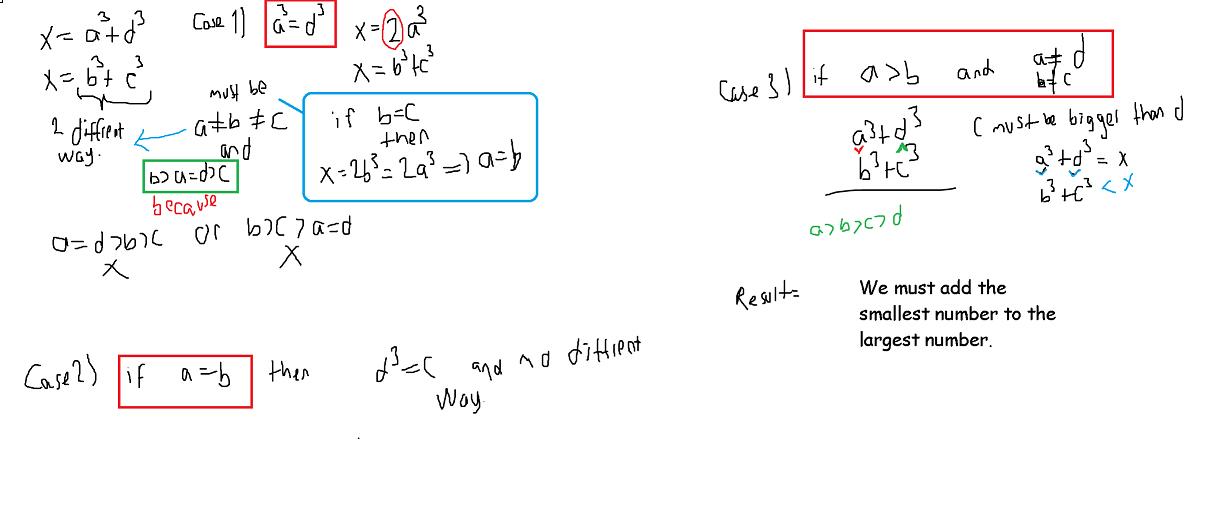 x = a³+d³
x = b³+c³
2 diffrent
way.
Case 1) a³=d³
x = 2a³
x = b³+c³
must be
a≠b≠c
and
b>a=d>c
because
if b=c
then
x=2b³=2a³ => a=b
a=d>b>c or b>c>a=d
X X
Case 2) if a=b then d³=c and no diffrent
way.
Case 3) if a>b and a≠d
b≠c
a³+d³
b³+c³
a>b>c>d
c must be bigger than d
a³+d³=x
b³+c³<x
Result=
We must add the
smallest number to the
largest number.